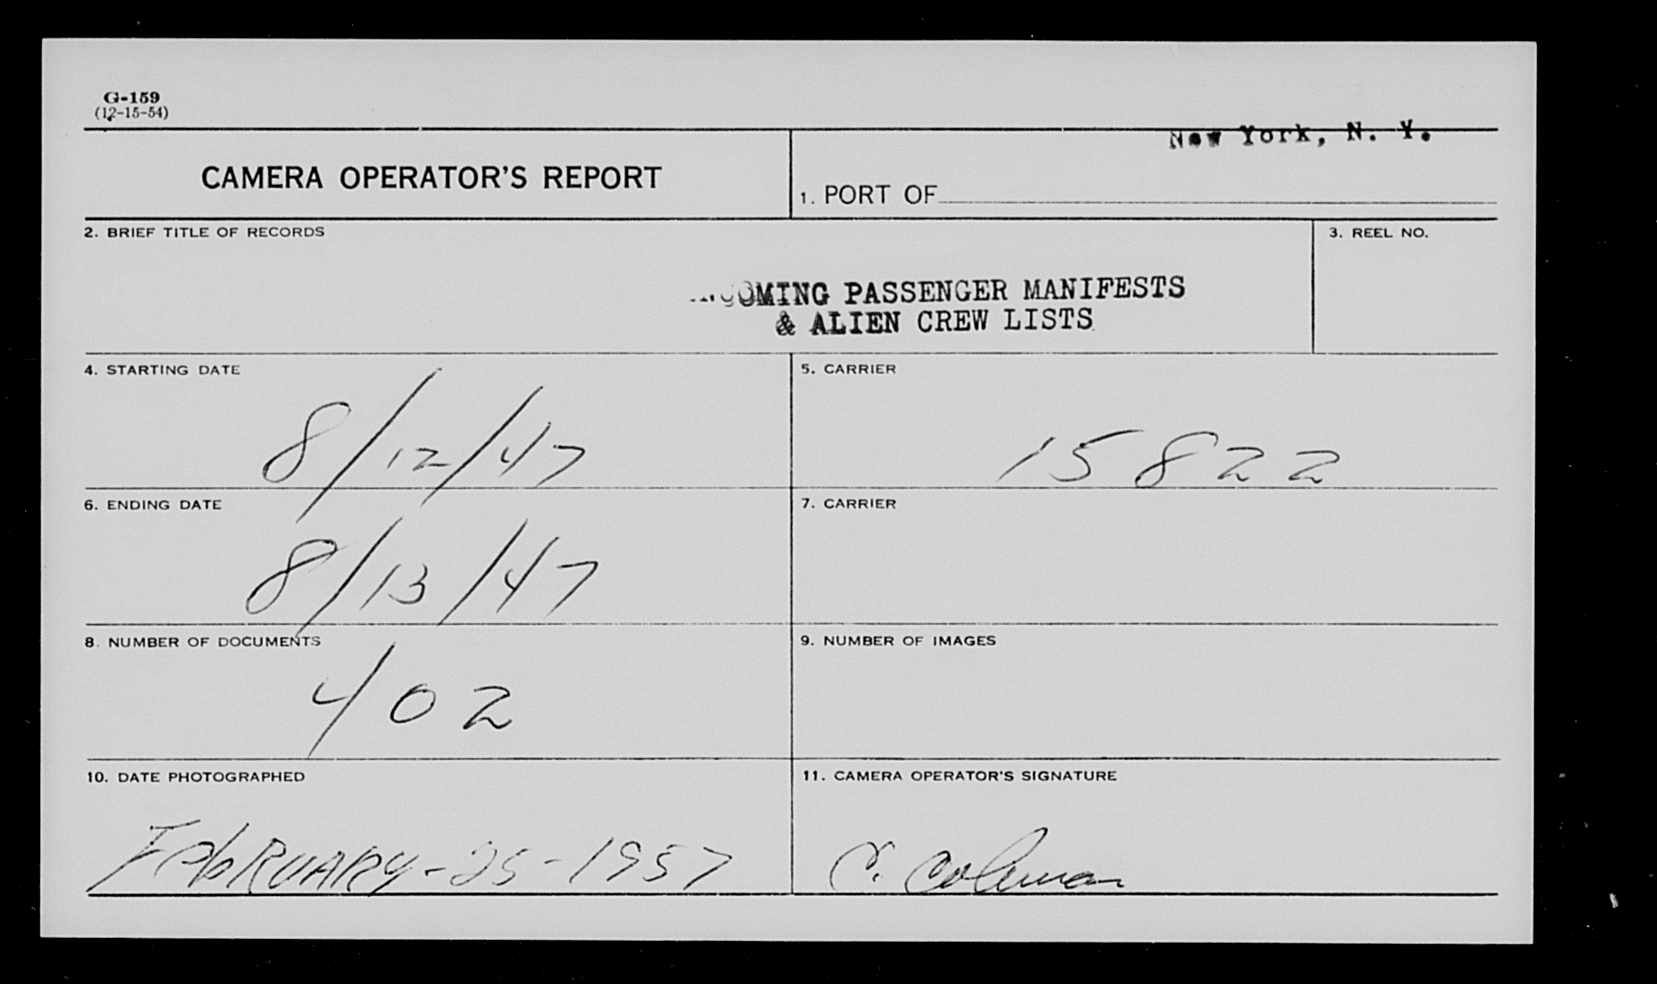 G-159
(12-15-54)
New York, N. Y.
CAMERA OPERATOR'S REPORT
1. PORT OF
2. BRIEF TITLE OF RECORDS
3. REEL NO.
INCOMING PASSENGER MANIFESTS
& ALIEN CREW LISTS
4. STARTING DATE
8/12/47
5. CARRIER
15822
6. ENDING DATE
8/13/47
7. CARRIER
8. NUMBER OF DOCUMENTS
402
9. NUMBER OF IMAGES
10. DATE PHOTOGRAPHED
FebRUARY-25-1957
11. CAMERA OPERATOR'S SIGNATURE
C. Coleman